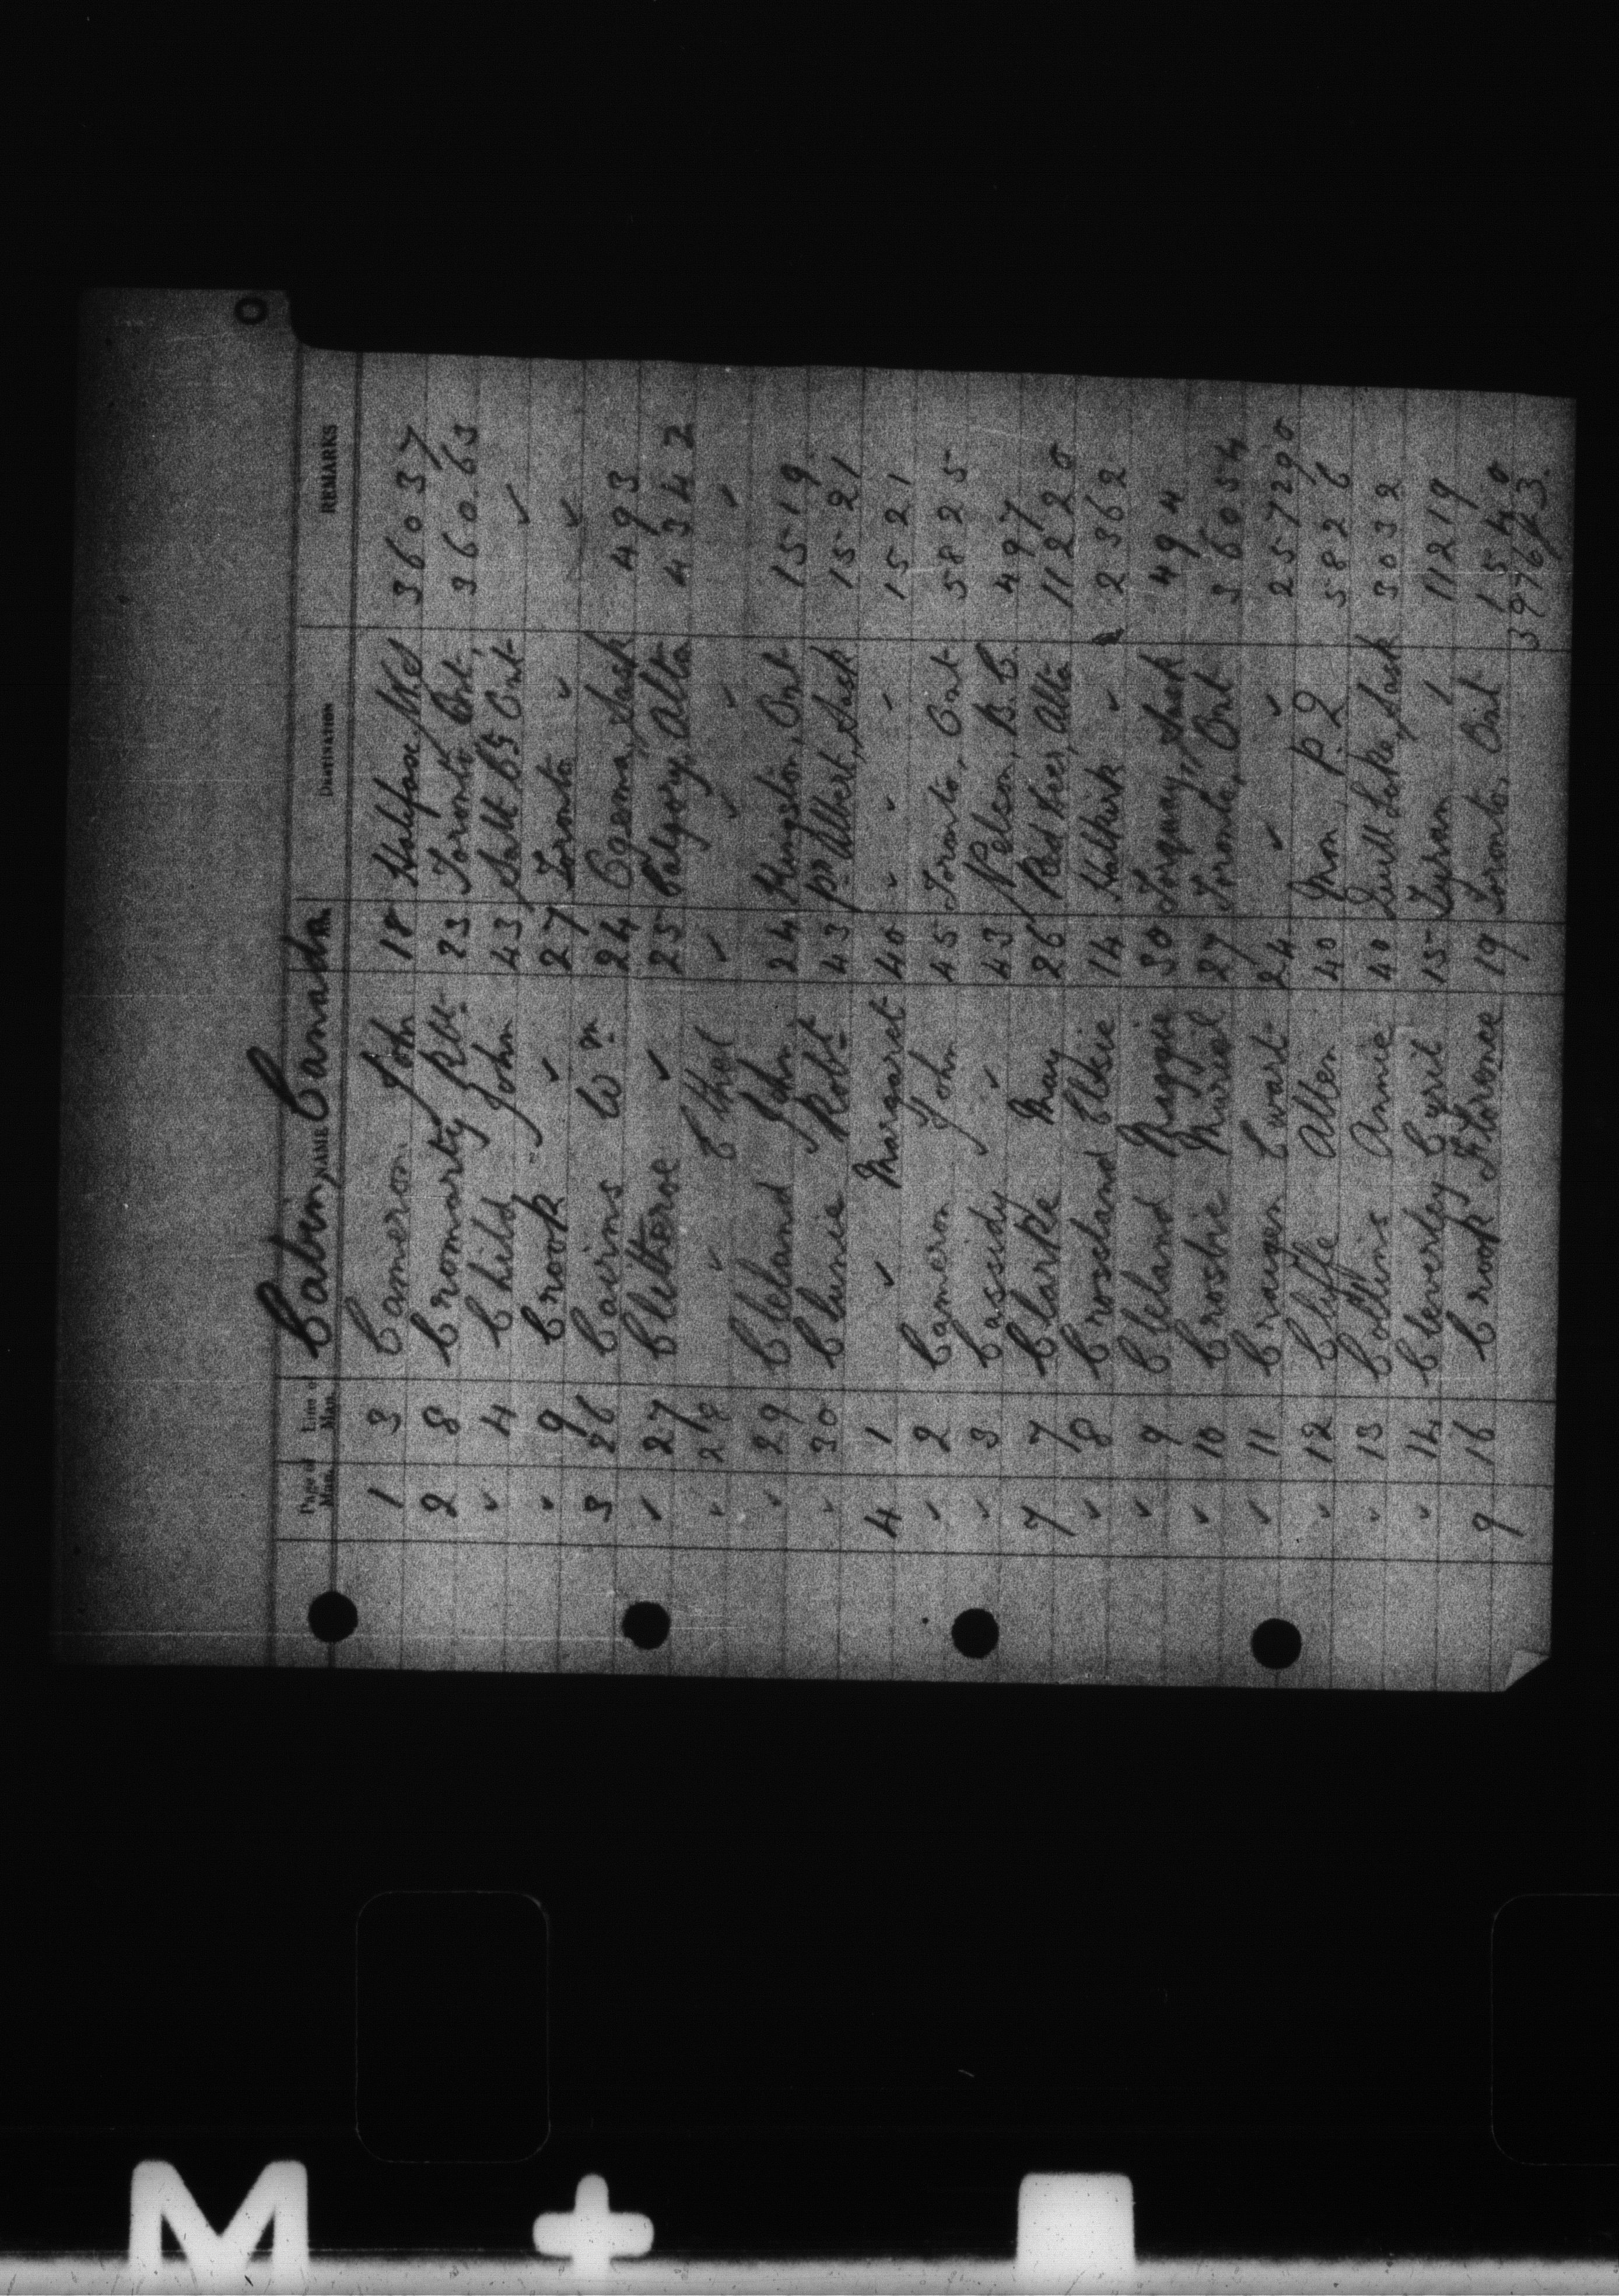 C
Cabin, NAME Canada
Page of Man. Line of Man. AGE DESTINATION REMARKS
1 3 Cameron John 18 Halifax, N.S 36037
2 8 Cromarty Robt 23 Toronto Ont. 36063
✓ 4 Child John 43 Sault Ont ✓
✓ 9 Crook ✓ 27 Toronto ✓ ✓
3 26 Cairns Wm 24 Ogema, Sask 493
✓ 27 Clitheroe ✓ 25 Calgary, Alta 4342
" 28 ✓ Ethel ✓ ✓ ✓ ✓
" 29 Cleland John 24 Kingston, Ont 1519
" 30 Clunie Robt 43 Pr Albert, Sask 1521
4 1 ✓ Margaret 40 " " " 1521
✓ 2 Cameron John 45 Toronto, Ont 5825
✓ 3 Cassidy ✓ 43 Nelson, B.C. 497
7 7 Clarke May 26 Red Deer, Alta 11220
✓ 8 Crosland Elsie 14 Halkirk ✓ 2362
✓ 9 Cleland Maggie 30 Torquay, Sask 494
✓ 10 Crosbie Muriel 27 Toronto, Ont 36054
✓ 11 Craigen Ewart 24 ✓ ✓ 257290
" 12 Cliffe Allen 40 P.Q 5826
" 13 Collins Annie 40 Quill Lake, Sask 3032
" 14 Cleverley Cyril 15 11219
9 16 Crook Florence 19 Toronto, Ont 1540